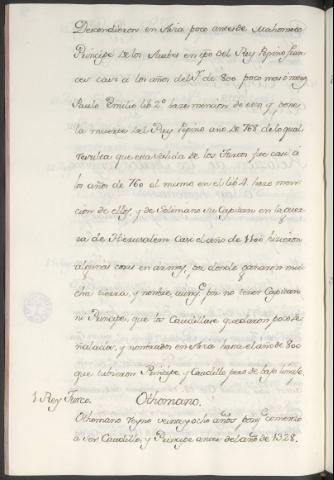 Descendieron en Asia poco antes de Mahometo
Principe de los Arabes en tpo del Rey Pepino fran
ces casi à los años del Sr. de 800 poco mas ò menos
Paulo Emilio lib 2º haze mencion de esto y pone
la muerte del Rey Pepino año de 768 de lo qual
resulta que esta salida de los Turcos fue casi à
los años de 760 el mismo en el lib 4. haze men
cion de ellos, y de Solimano su Capitan en la guer
ra de Hierusalem casi el año de 1100 hizieron
algunas cosas en armas, por donde ganaron mu
cha tierra, y nombre, aunqe. por no tener Capitan
ni Principe, que los Caudillase quedaron poco se
ñalados, y nombrados en Asia hasta el año de 800
que tubieron Principe, y Caudillo pero de bajo linaje.
1 Rey Turco. Othomano.
Othomano reyno veinte y ocho años porqe. comenzo
a ser Caudillo, y Principe antes del año de 1328.